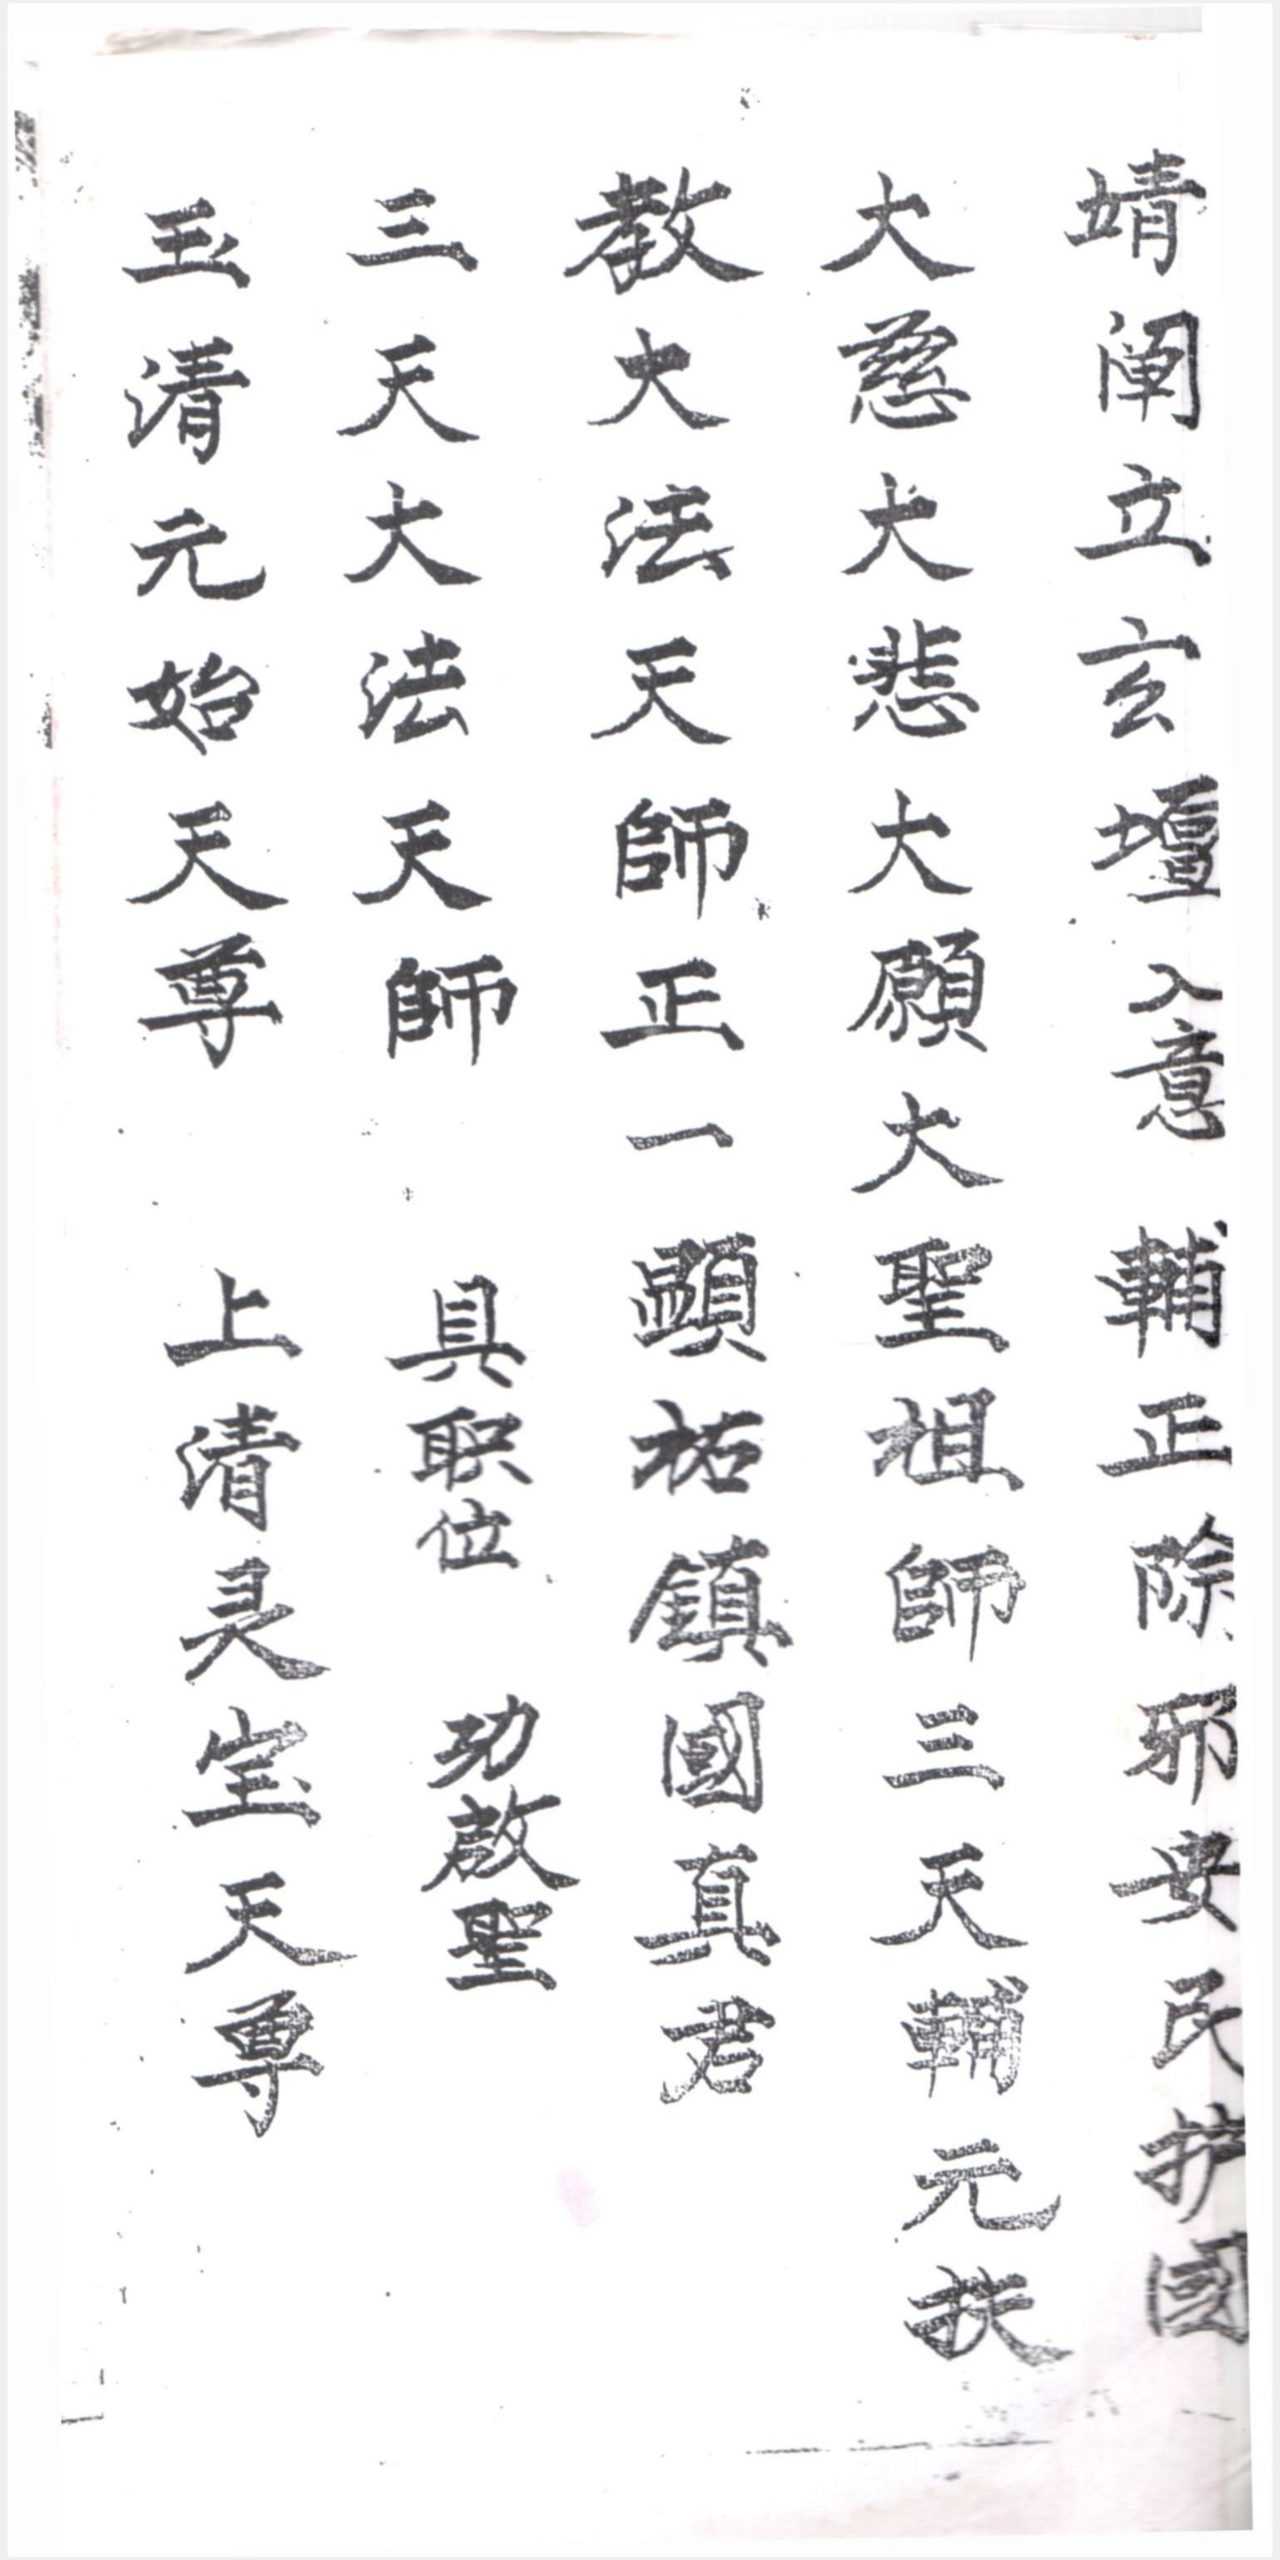 靖阐立玄壇 入意 輔正除邪安民护國
大慈大悲大願大聖祖師三天輔元扶
教大法天師正一顕祐鎮國真君
三天大法天師 具职位 功啟聖
玉清元始天尊 上清灵宝天尊